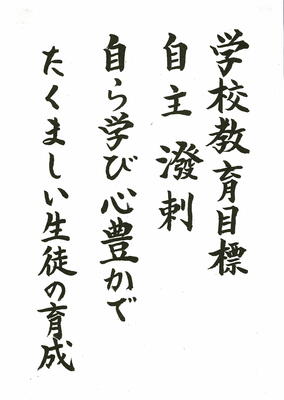 学校教育目標
自主 潑剌
自ら学び心豊かで
たくましい生徒の育成